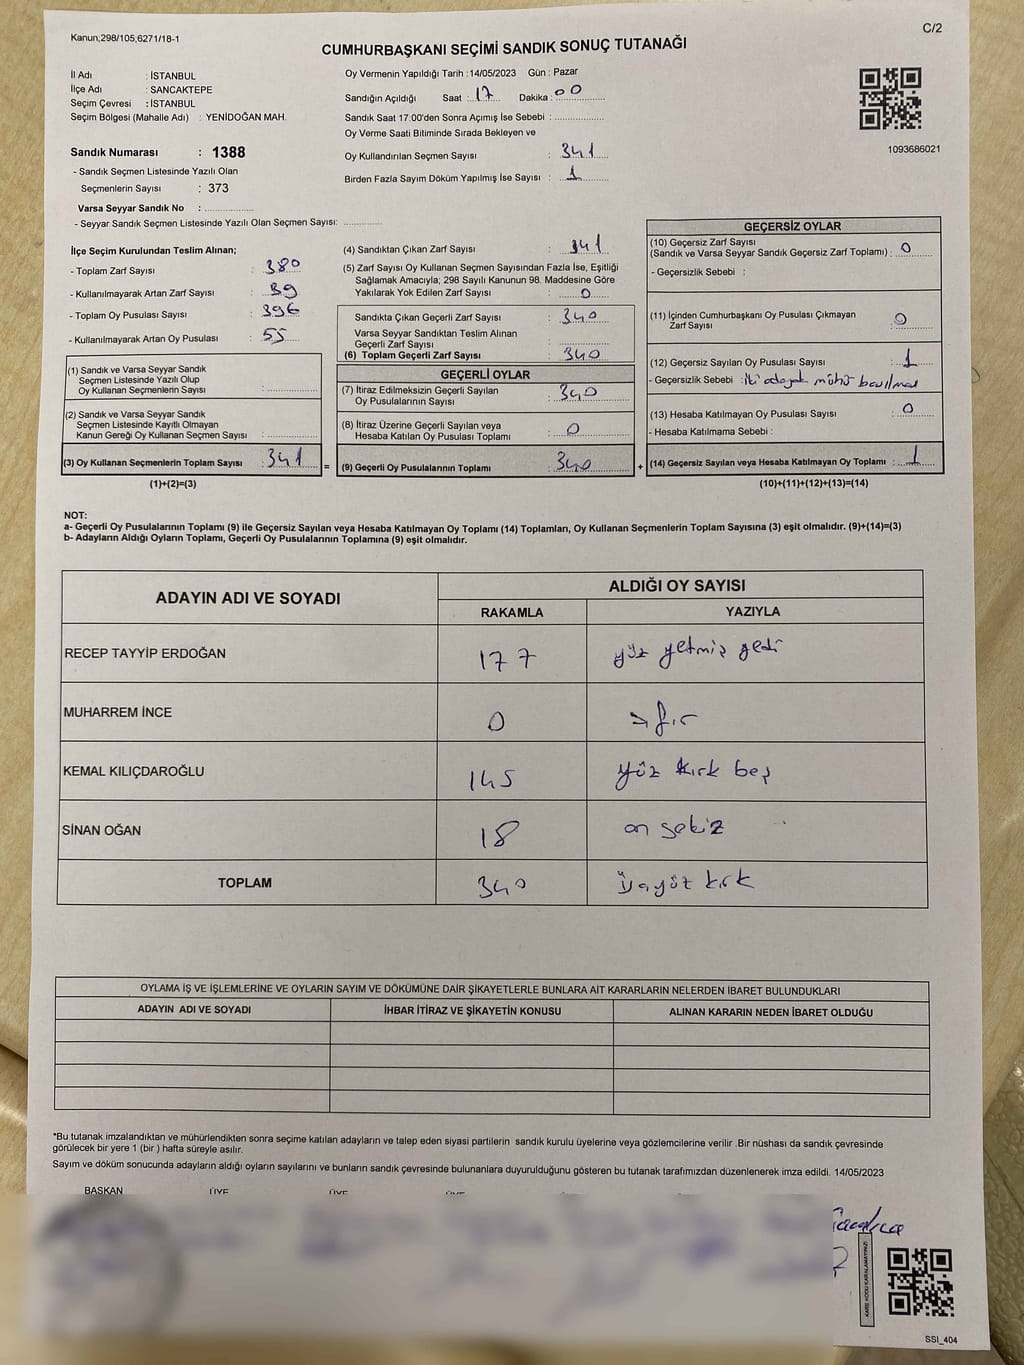 Kanun;298/105,6271/18-1
C/2
CUMHURBAŞKANI SEÇİMİ SANDIK SONUÇ TUTANAĞI
İl Adı : İSTANBUL
İlçe Adı : SANCAKTEPE
Seçim Çevresi : İSTANBUL
Seçim Bölgesi (Mahalle Adı) : YENİDOĞAN MAH.
Sandık Numarası : 1388
- Sandık Seçmen Listesinde Yazılı Olan
Seçmenlerin Sayısı : 373
Varsa Seyyar Sandık No : ..............
- Seyyar Sandık Seçmen Listesinde Yazılı Olan Seçmen Sayısı: ............
Oy Vermenin Yapıldığı Tarih : 14/05/2023 Gün : Pazar
Sandığın Açıldığı Saat : 17 Dakika : 00
Sandık Saat 17:00'den Sonra Açımış İse Sebebi : ..............
Oy Verme Saati Bitiminde Sırada Bekleyen ve
Oy Kullandırılan Seçmen Sayısı : 341
Birden Fazla Sayım Döküm Yapılmış İse Sayısı : 1
1093686021
İlçe Seçim Kurulundan Teslim Alınan;
- Toplam Zarf Sayısı : 380
- Kullanılmayarak Artan Zarf Sayısı : 39
- Toplam Oy Pusulası Sayısı : 396
- Kullanılmayarak Artan Oy Pusulası : 55
(1) Sandık ve Varsa Seyyar Sandık
Seçmen Listesinde Yazılı Olup
Oy Kullanan Seçmenlerin Sayısı : ..............
(2) Sandık ve Varsa Seyyar Sandık
Seçmen Listesinde Kayıtlı Olmayan
Kanun Gereği Oy Kullanan Seçmen Sayısı : ..............
(3) Oy Kullanan Seçmenlerin Toplam Sayısı : 341 =
(1)+(2)=(3)
(4) Sandıktan Çıkan Zarf Sayısı : 341
(5) Zarf Sayısı Oy Kullanan Seçmen Sayısından Fazla İse, Eşitliği
Sağlamak Amacıyla; 298 Sayılı Kanunun 98. Maddesine Göre
Yakılarak Yok Edilen Zarf Sayısı : 0
Sandıkta Çıkan Geçerli Zarf Sayısı : 340
Varsa Seyyar Sandıktan Teslim Alınan
Geçerli Zarf Sayısı : ..............
(6) Toplam Geçerli Zarf Sayısı : 340
GEÇERLİ OYLAR
(7) İtiraz Edilmeksizin Geçerli Sayılan
Oy Pusulalarının Sayısı : 340
(8) İtiraz Üzerine Geçerli Sayılan veya
Hesaba Katılan Oy Pusulası Toplamı : 0
(9) Geçerli Oy Pusulalarının Toplamı : 340 +
GEÇERSİZ OYLAR
(10) Geçersiz Zarf Sayısı
(Sandık ve Varsa Seyyar Sandık Geçersiz Zarf Toplamı) : 0
- Geçersizlik Sebebi :
(11) İçinden Cumhurbaşkanı Oy Pusulası Çıkmayan
Zarf Sayısı : 0
(12) Geçersiz Sayılan Oy Pusulası Sayısı : 1
- Geçersizlik Sebebi : İki adayak mühür basılması
(13) Hesaba Katılmayan Oy Pusulası Sayısı : 0
- Hesaba Katılmama Sebebi :
(14) Geçersiz Sayılan veya Hesaba Katılmayan Oy Toplamı : 1
(10)+(11)+(12)+(13)=(14)
NOT:
a- Geçerli Oy Pusulalarının Toplamı (9) ile Geçersiz Sayılan veya Hesaba Katılmayan Oy Toplamı (14) Toplamları, Oy Kullanan Seçmenlerin Toplam Sayısına (3) eşit olmalıdır. (9)+(14)=(3)
b- Adayların Aldığı Oyların Toplamı, Geçerli Oy Pusulalarının Toplamına (9) eşit olmalıdır.
ADAYIN ADI VE SOYADI
ALDIĞI OY SAYISI
RAKAMLA YAZIYLA
RECEP TAYYİP ERDOĞAN 177 yüz yetmiş yedi
MUHARREM İNCE 0 sıfır
KEMAL KILIÇDAROĞLU 145 yüz kırk beş
SİNAN OĞAN 18 on sekiz
TOPLAM 340 üçyüz kırk
OYLAMA İŞ VE İŞLEMLERİNE VE OYLARIN SAYIM VE DÖKÜMÜNE DAİR ŞİKAYETLERLE BUNLARA AİT KARARLARIN NELERDEN İBARET BULUNDUKLARI
ADAYIN ADI VE SOYADI İHBAR İTİRAZ VE ŞİKAYETİN KONUSU ALINAN KARARIN NEDEN İBARET OLDUĞU
*Bu tutanak imzalandıktan ve mühürlendikten sonra seçime katılan adayların ve talep eden siyasi partilerin sandık kurulu üyelerine veya gözlemcilerine verilir .Bir nüshası da sandık çevresinde
görülecek bir yere 1 (bir ) hafta süreyle asılır.
Sayım ve döküm sonucunda adayların aldığı oyların sayılarını ve bunların sandık çevresinde bulunanlara duyurulduğunu gösteren bu tutanak tarafımızdan düzenlenerek imza edildi. 14/05/2023
BAŞKAN ÜYE ÜYE ÜYE
KARE KODU KARALAMAYINIZ!
SSI_404